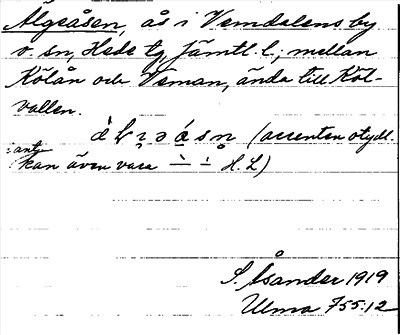 Älgeåsen, ås i Vemdalens by
o. sn, Hede tg, Jämtl. l; mellan
Kölån och Veman, ända till Köl-
vallen.
(accenten otydl.
: ant.
kan även vara ∸ ∸ H. L)
S. Åsander 1919
Ulma 755:12